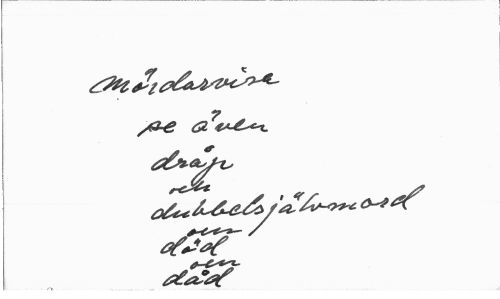 Mördarvisa
se även
dråp
och
dubbelsjälvmord
och
död
och
dåd